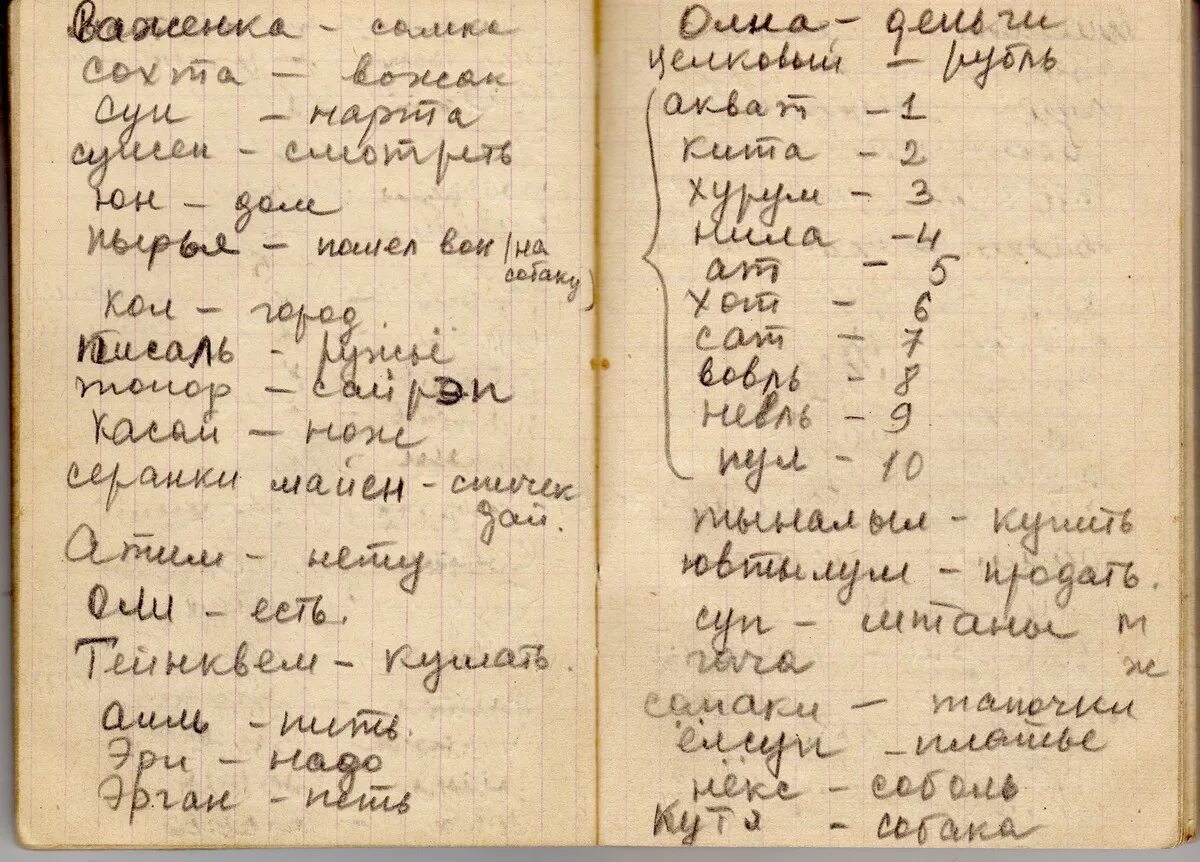 Важенка - самка
сохта - вожак
сун - нарта
сунсен - смотреть
юн - дом
пырья - пошел вон (на
собаку)
кол - город
писаль - ружьё
топор - сайрэп
касай - нож
серанки майен - спичек
дай.
Атим - нету
Оли - есть.
Тейнквем - кушать.
аиль - пить.
Эри - надо
Эрган - петь
Олна - деньги
целковый - рубль
акват - 1
кита - 2
хурум - 3
нила - 4
ат - 5
хот - 6
сат - 7
вовль - 8
невль - 9
пул - 10
тыналыл - купить
ювтылум - продать.
суп - штаны м
гача ж
самаки - тапочки
ёлсуп - платье
нёкс - соболь
Кутя - собака